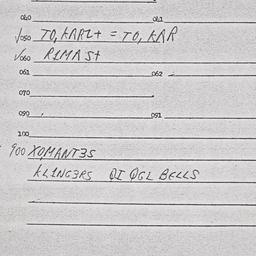 040 041
√050 TO, KARL+ = TO, KAR
√060 RIMA St
061 062
070
090 091
100
900 XOMANT3S
KLINGERS OI OGL BELLS